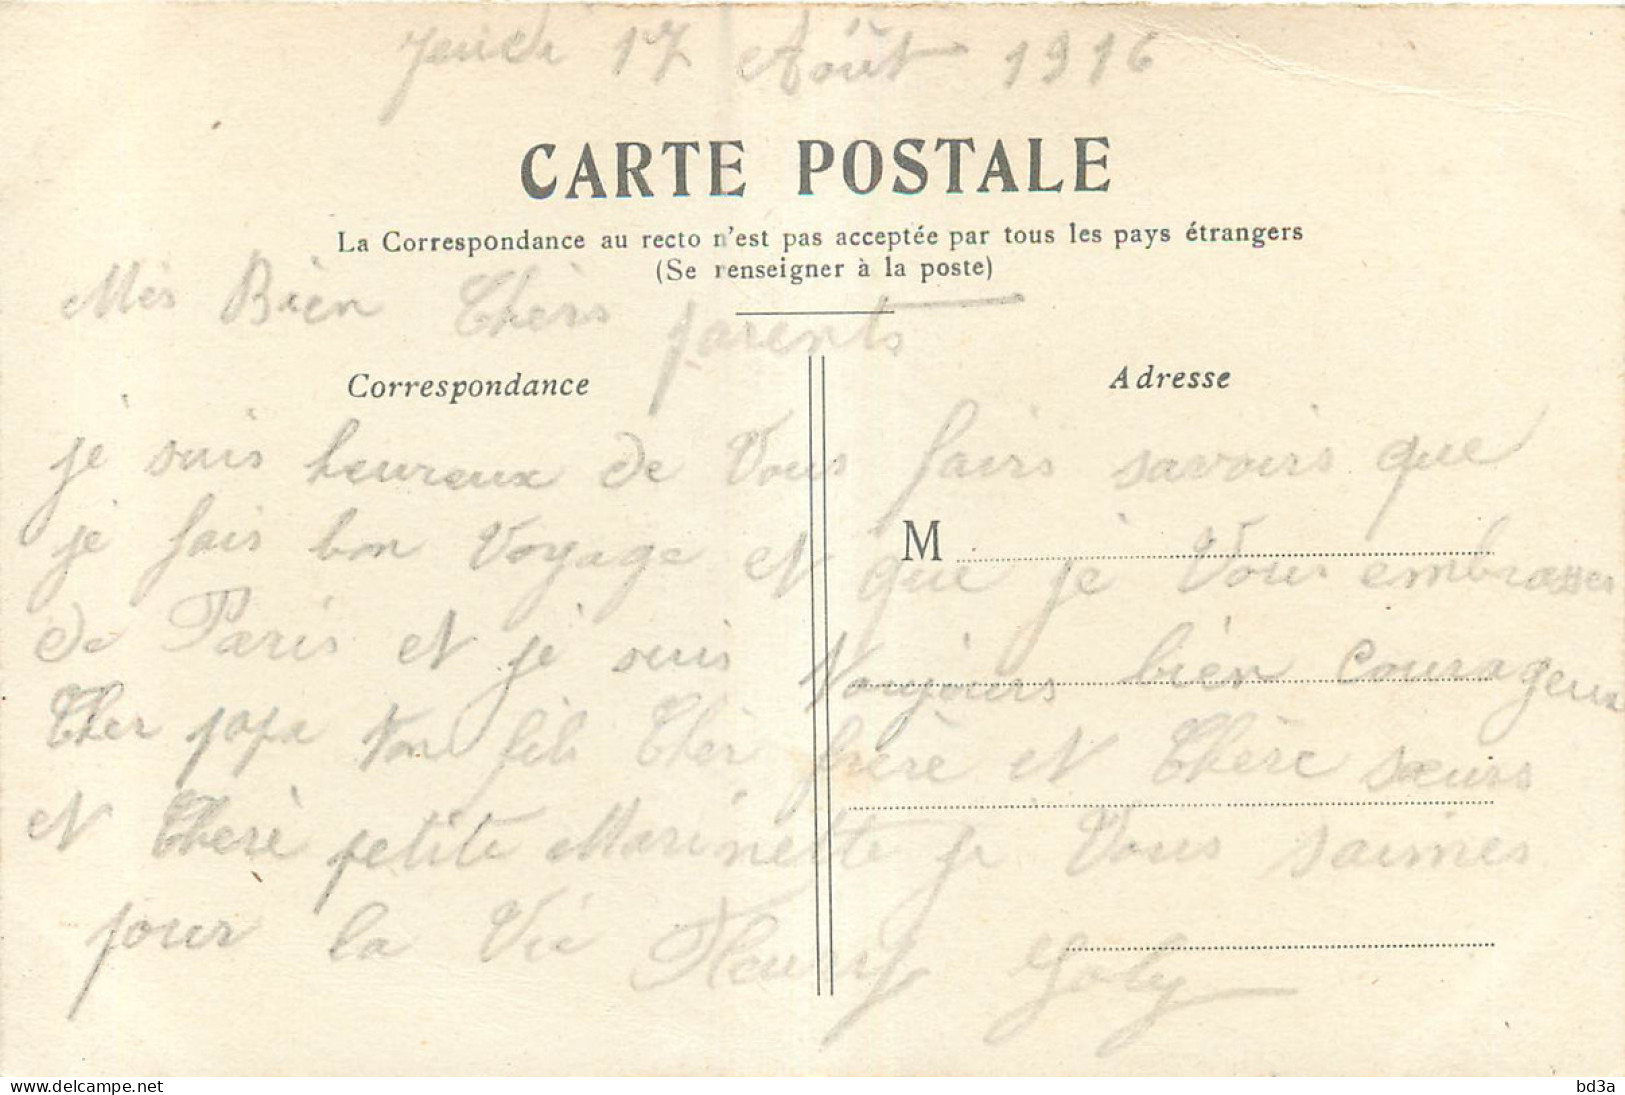 Jeudi 17 Août 1916
CARTE POSTALE
La Correspondance au recto n'est pas acceptée par tous les pays étrangers
(Se renseigner à la poste)
Mes Bien Chèrs parents
Correspondance
Adresse
je suis heureux de Vous fairs savoirs que
M
je fais bon Voyage et que je Vous embrasses
de Paris et je suis toujours bièn Courageux
Cher papa ton fils Chèr frère et Chère sœurs
et Cherè petite Marinette je Vous saimes
pour la Vie Fleury Goly
delcampe.net
bd3a